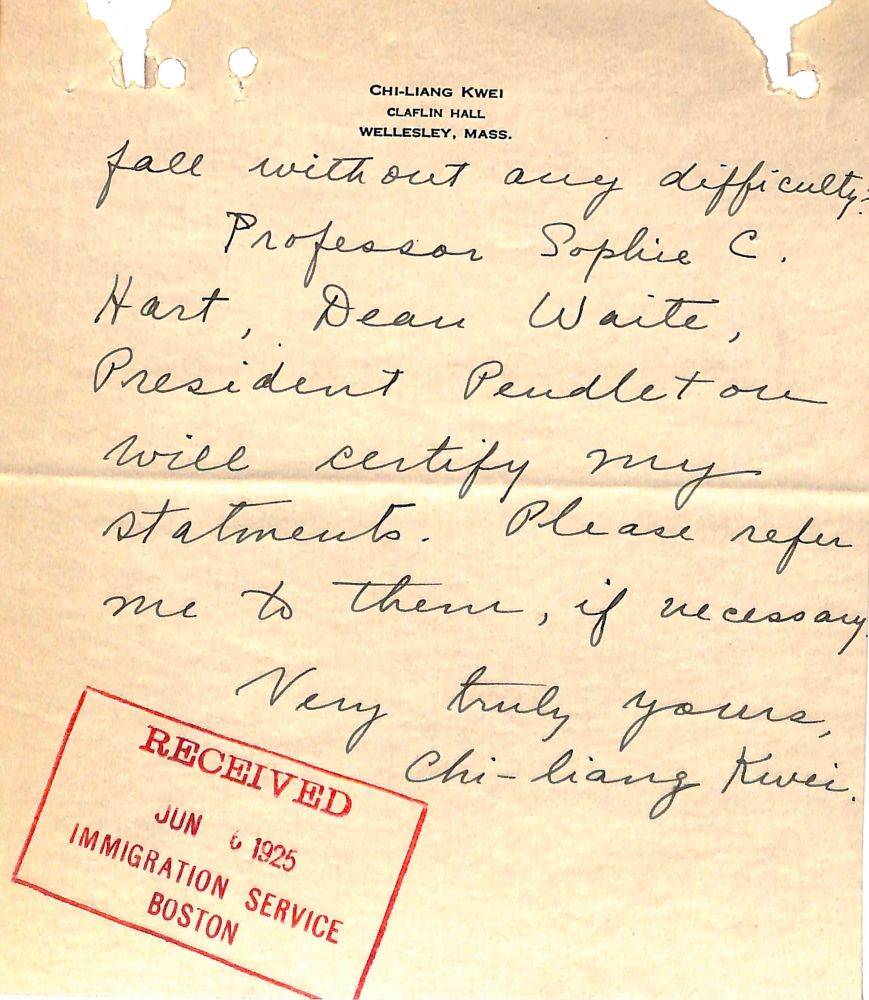 CHI-LIANG KWEI
CLAFLIN HALL
WELLESLEY, MASS.
fall without any difficulty?
Professor Sophie C.
Hart, Dean Waite,
President Pendleton
will certify my
statments. Please refer
me to them, if necessary.
Very truly yours,
Chi-liang Kwei.
RECEIVED
JUN 6 1925
IMMIGRATION SERVICE
BOSTON